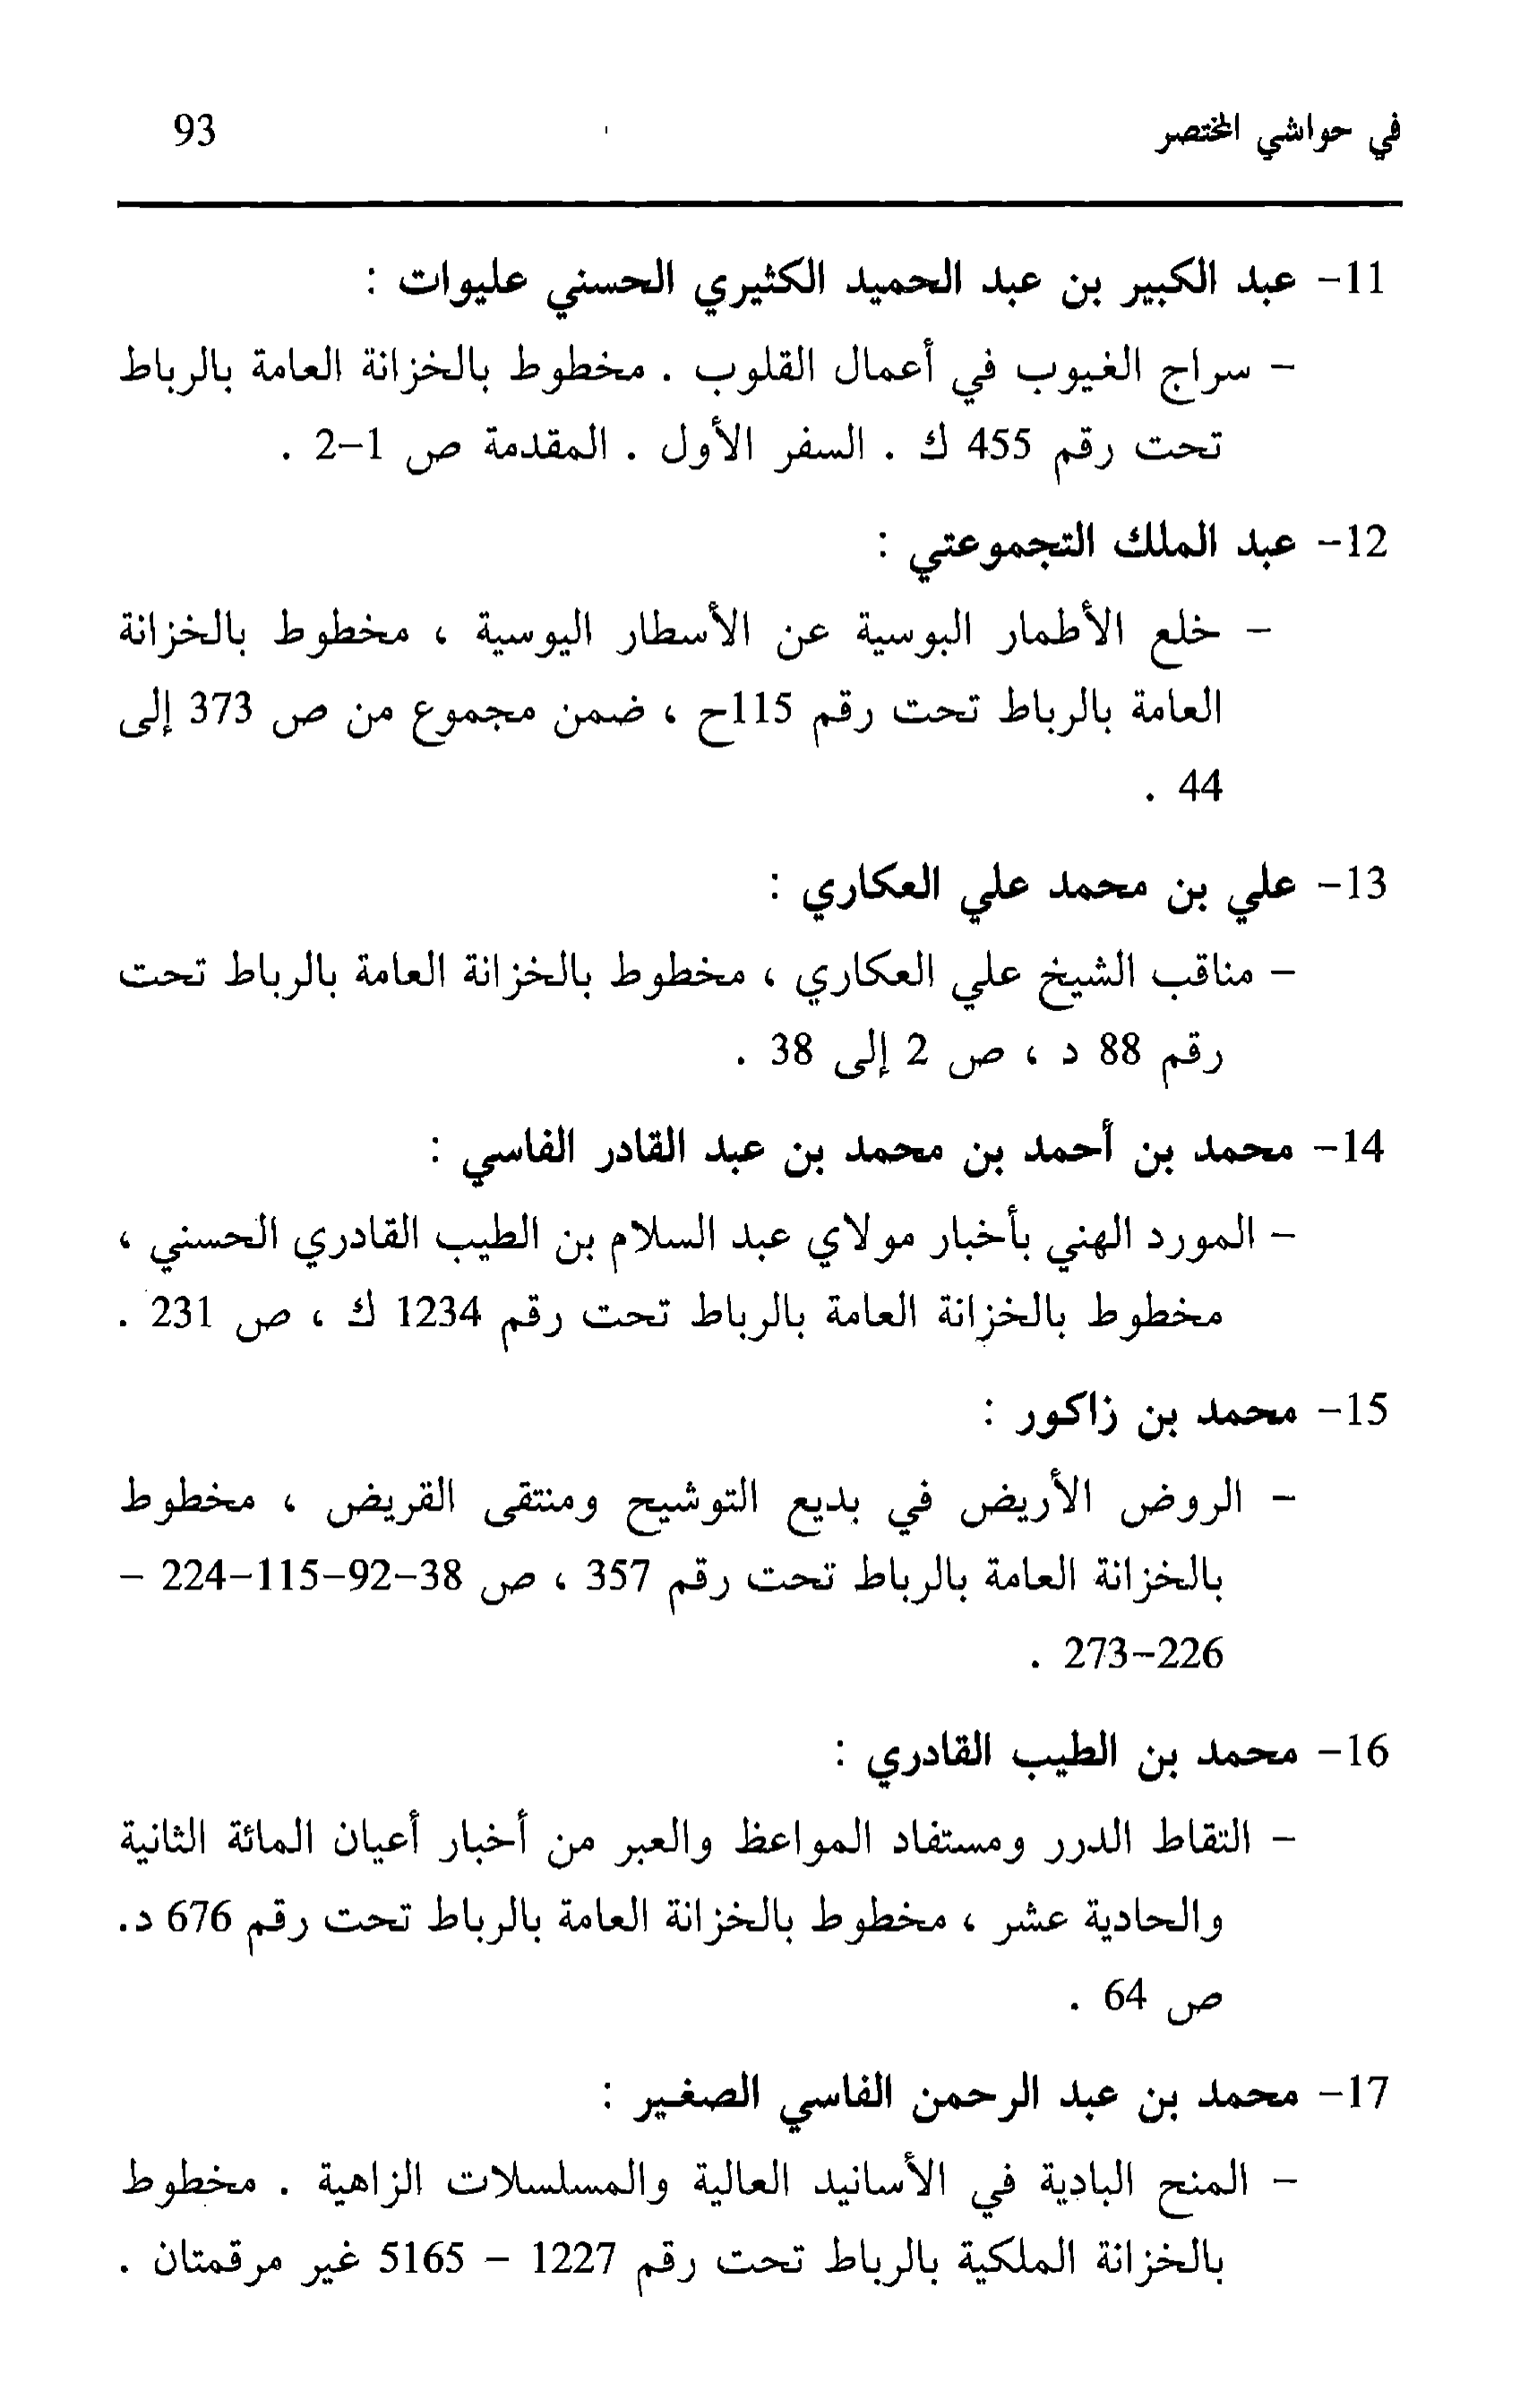 في حواشي المختصر 93
11- عبد الكبير بن عبد الحميد الكثيري الحسني عليوات :
- سراج الغيوب في أعمال القلوب . مخطوط بالخزانة العامة بالرباط
تحت رقم 455 ك . السفر الأول . المقدمة ص 1-2 .
12- عبد الملك التجموعتي :
- خلع الأطمار البوسية عن الأسطار اليوسية ، مخطوط بالخزانة
العامة بالرباط تحت رقم 115ح ، ضمن مجموع من ص 373 إلى
44 .
13- علي بن محمد علي العكاري :
- مناقب الشيخ علي العكاري ، مخطوط بالخزانة العامة بالرباط تحت
رقم 88 د ، ص 2 إلى 38 .
14- محمد بن أحمد بن محمد بن عبد القادر الفاسي :
- المورد الهني بأخبار مولاي عبد السلام بن الطيب القادري الحسني ،
مخطوط بالخزانة العامة بالرباط تحت رقم 1234 ك ، ص 231 .
15- محمد بن زاكور :
- الروض الأريض في بديع التوشيح ومنتقى القريض ، مخطوط
بالخزانة العامة بالرباط تحت رقم 357 ، ص 38-92-115-224 -
226-273 .
16- محمد بن الطيب القادري :
- التقاط الدرر ومستفاد المواعظ والعبر من أخبار أعيان المائة الثانية
والحادية عشر ، مخطوط بالخزانة العامة بالرباط تحت رقم 676 د.
ص 64 .
17- محمد بن عبد الرحمن الفاسي الصغير :
- المنح البادية في الأسانيد العالية والمسلسلات الزاهية . مخطوط
بالخزانة الملكية بالرباط تحت رقم 1227 - 5165 غير مرقمتان .